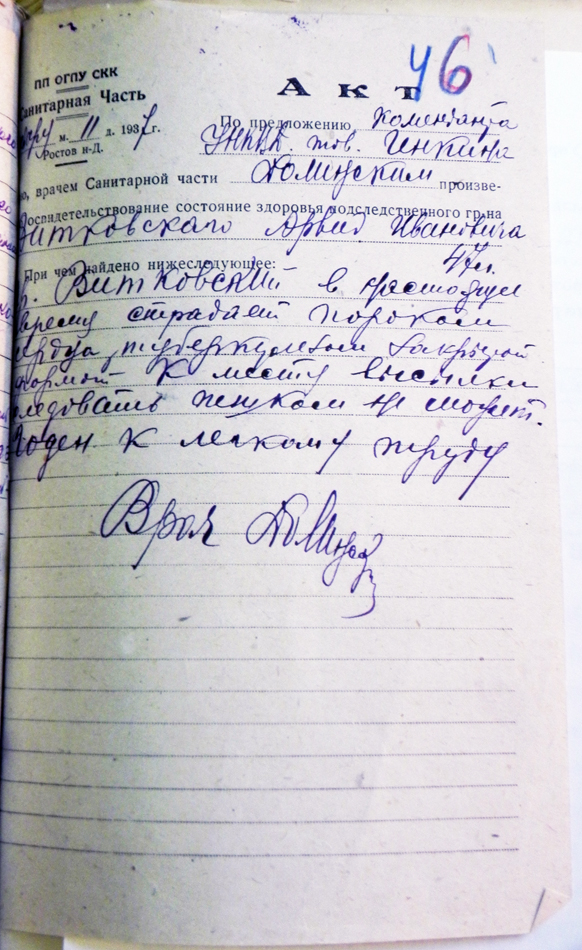 46
ПП ОГПУ СКК
Санитарная Часть
м. 11 д. 1937 г.
Ростов н-Д.
Акт
По предложению Коменданта
УНКВД тов.
, врачем Санитарной части Долинским произве-
освидетельствование состояние здоровья подследственного гр-на
Витковского Арвид Ивановича
47 л.
При чем найдено нижеследующее:
Витковский в настоящее
время страдает пороком
сердца, туберкулезом закрытой
формой К месту высылки
следовать пешком не может.
Годен к легкому труду
Врач